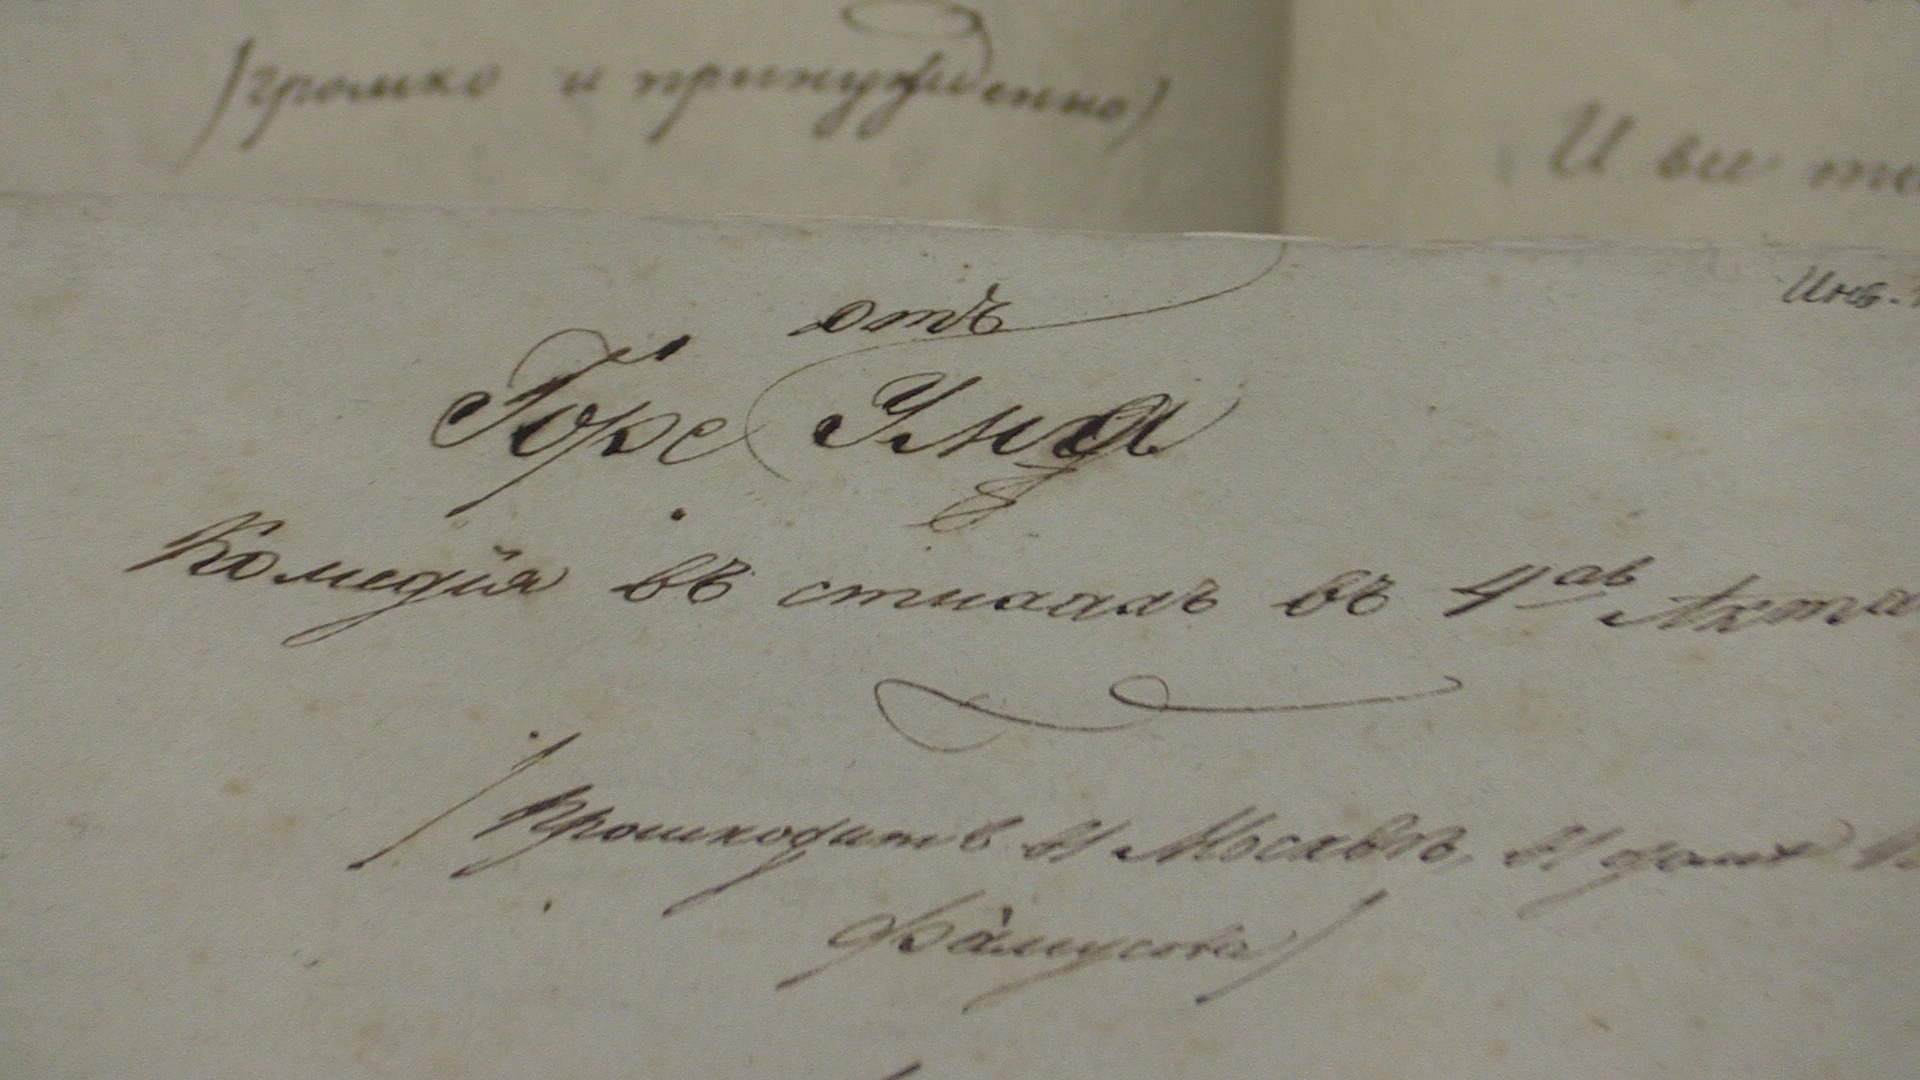 (громко и принужденно)
И все
Инв.
отъ
Горе Ума
Комедія въ стихахъ въ 4хъ Акта
(Происходитъ въ Москвѣ, въ домѣ
Фамусова)